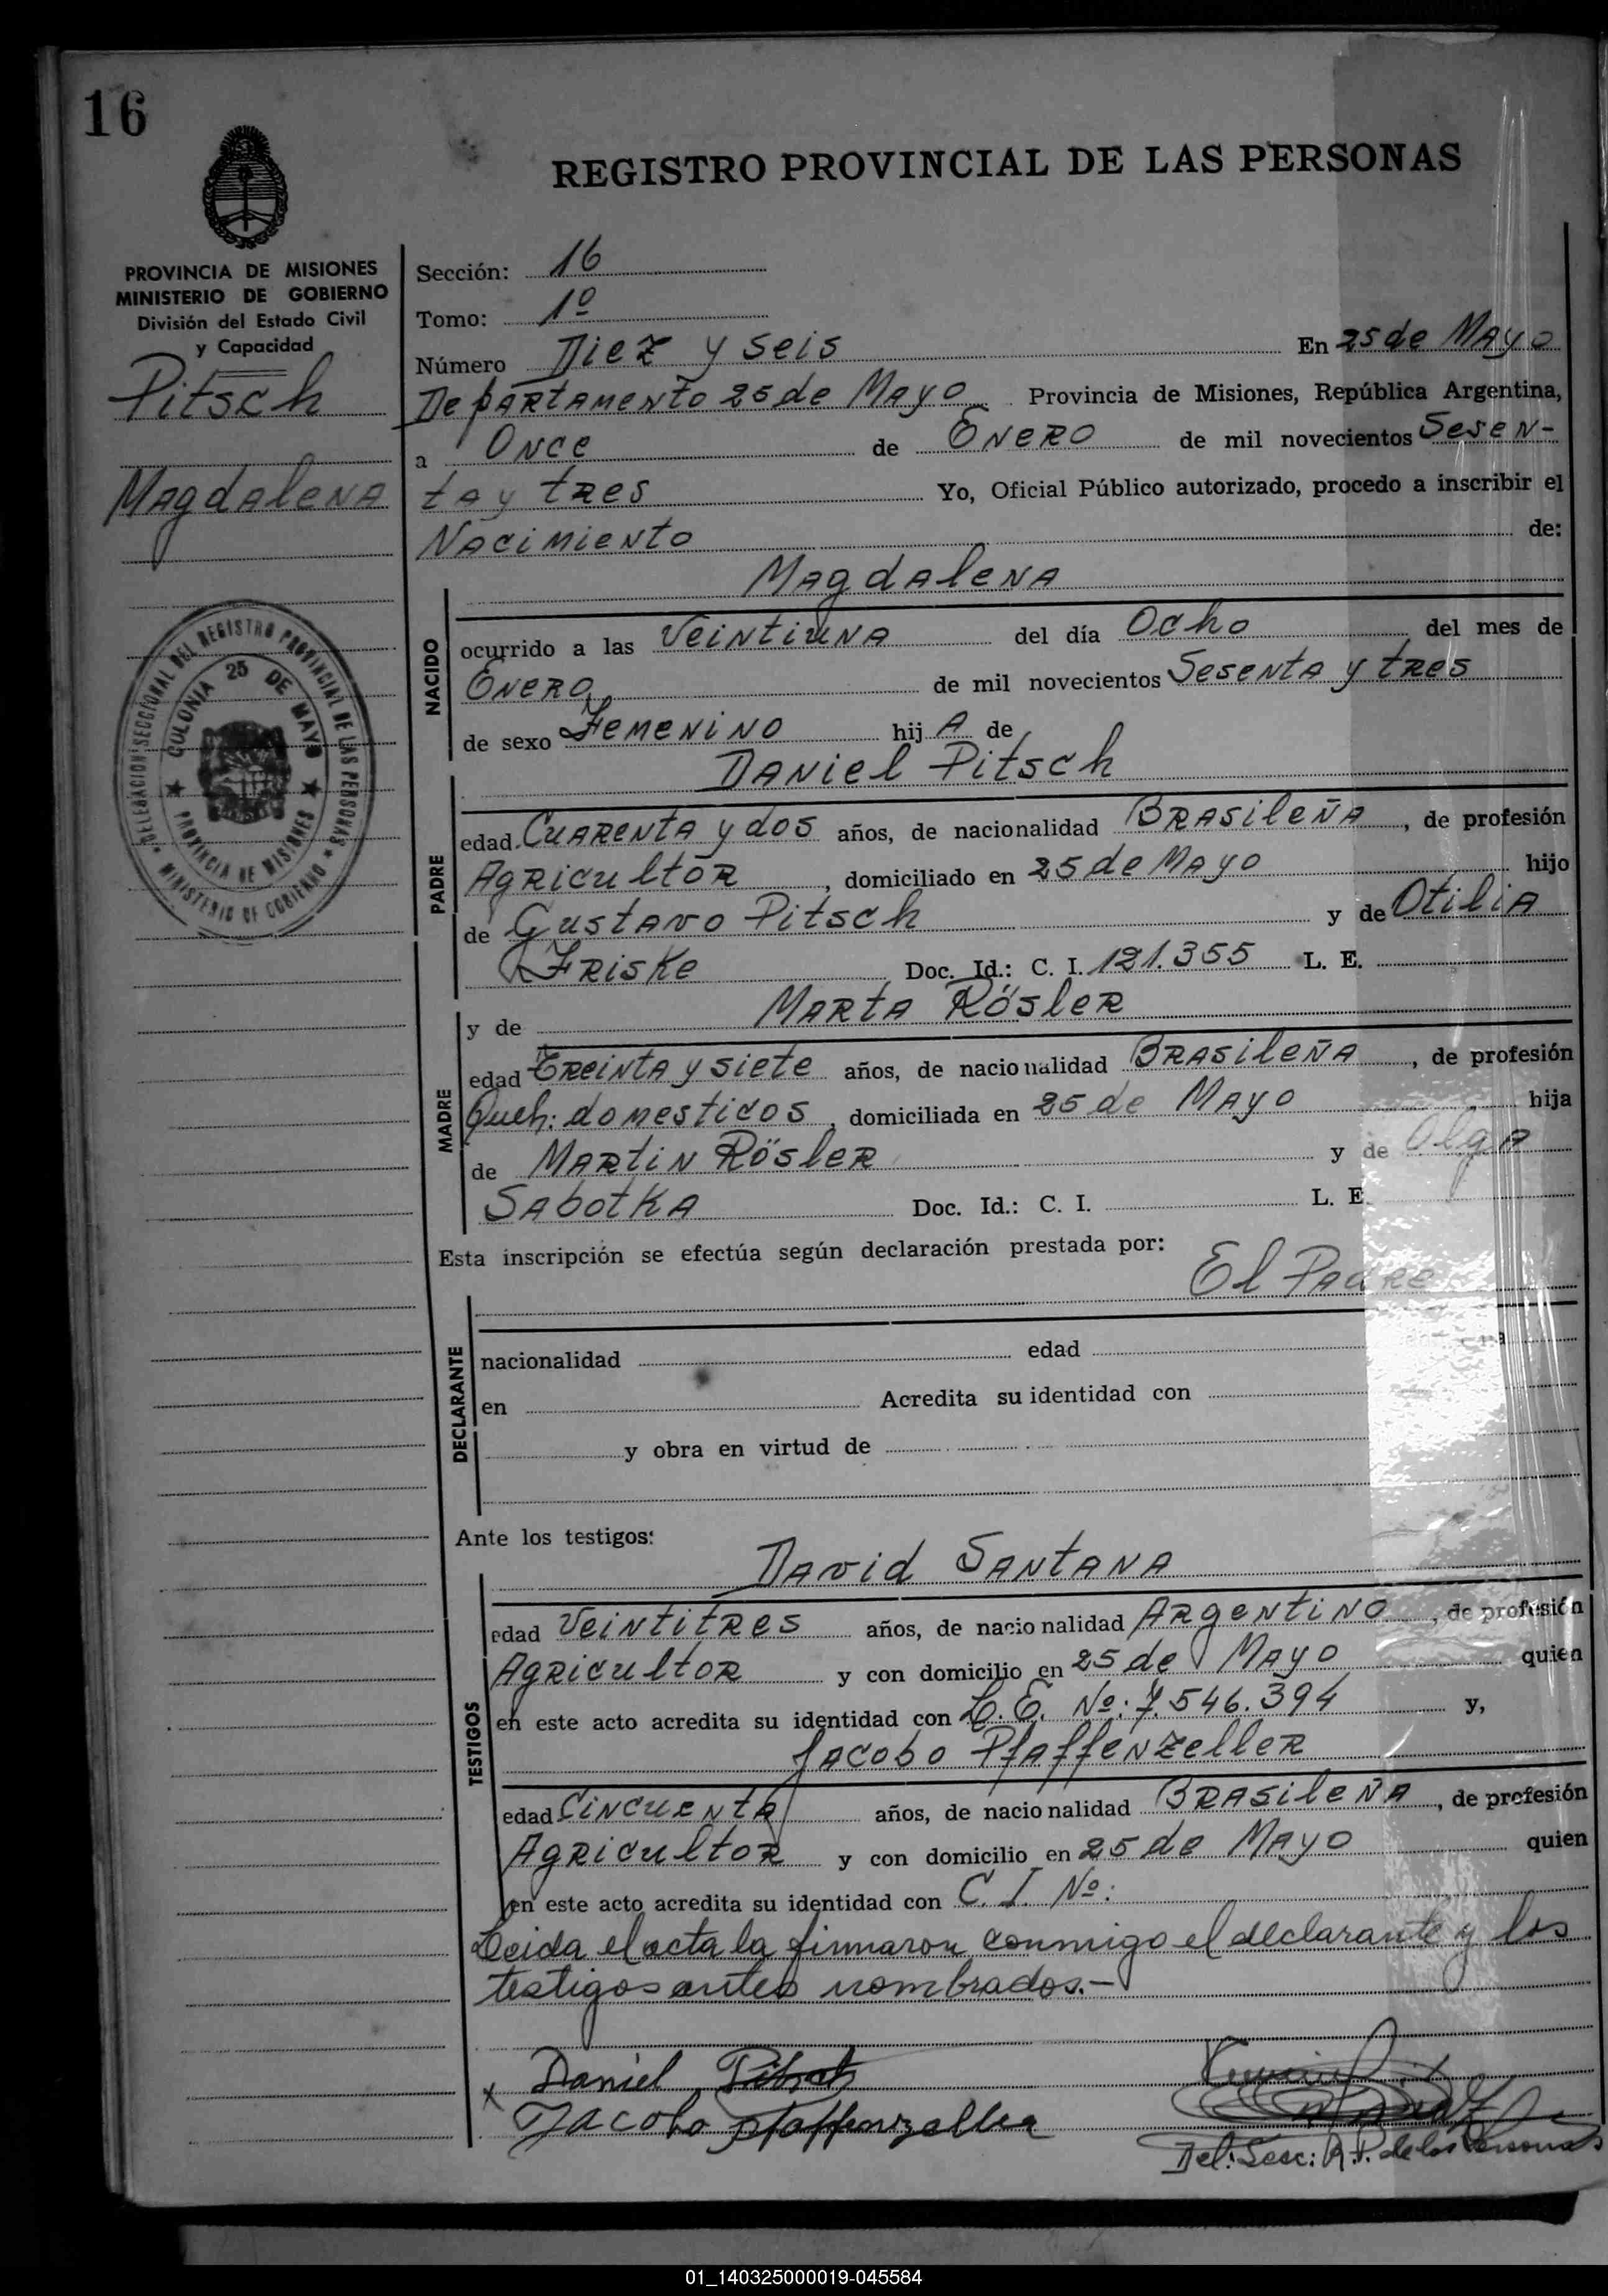 16
REGISTRO PROVINCIAL DE LAS PERSONAS
PROVINCIA DE MISIONES
MINISTERIO DE GOBIERNO
División del Estado Civil
y Capacidad
Pitsch
Magdalena
DELEGACION SECCIONAL DEL REGISTRO PROVINCIAL DE LAS PERSONAS
★ MINISTERIO DE GOBIERNO ★
COLONIA 25 DE MAYO
★ PROVINCIA DE MISIONES ★
Sección: 16
Tomo: 1º
Número Diez y seis En 25 de Mayo
Departamento 25 de Mayo Provincia de Misiones, República Argentina,
a Once de Enero de mil novecientos Sesen-
ta y tres Yo, Oficial Público autorizado, procedo a inscribir el
Nacimiento de:
Magdalena
NACIDO
ocurrido a las Veintiuna del día Ocho del mes de
Enero de mil novecientos Sesenta y tres
de sexo Femenino hij A de
Daniel Pitsch
PADRE
edad Cuarenta y dos años, de nacionalidad Brasileña, de profesión
Agricultor, domiciliado en 25 de Mayo hijo
de Gustavo Pitsch y de Otilia
Friske Doc. Id.: C. I. 121.355 L. E.
y de Marta Rösler
MADRE
edad Treinta y siete años, de nacionalidad Brasileña, de profesión
Queh: domesticos, domiciliada en 25 de Mayo hija
de Martin Rösler y de Olga
Sabotka Doc. Id.: C. I. L. E.
Esta inscripción se efectúa según declaración prestada por:
El Padre
DECLARANTE
nacionalidad edad
en Acredita su identidad con
y obra en virtud de
Ante los testigos:
David Santana
TESTIGOS
edad Veintitres años, de nacionalidad Argentino, de profesión
Agricultor y con domicilio en 25 de Mayo quien
en este acto acredita su identidad con L. E. Nº: 7.546.394 y,
Jacobo Pfaffenzeller
edad Cincuenta años, de nacionalidad Brasileña, de profesión
Agricultor y con domicilio en 25 de Mayo quien
en este acto acredita su identidad con C. I. Nº:
Leida el acta la firmaron conmigo el declarante y los
testigos antes nombrados.-
x Daniel Pitsch
Jacobo Pfaffenzeller
Del: Secc: R. P. de las Personas
01_140325000019-045584